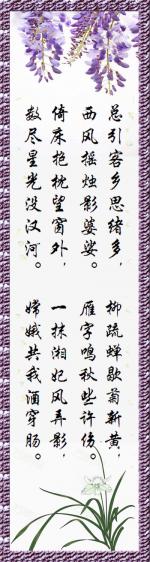 总引客乡思绪多，
西风摇烛影婆娑。
倚床抱枕望窗外，
数尽星光没汉河。
柳疏蝉歇菊新黄，
雁字鸣秋些许伤。
一抹湘妃风弄影，
嫦娥共我酒穿肠。